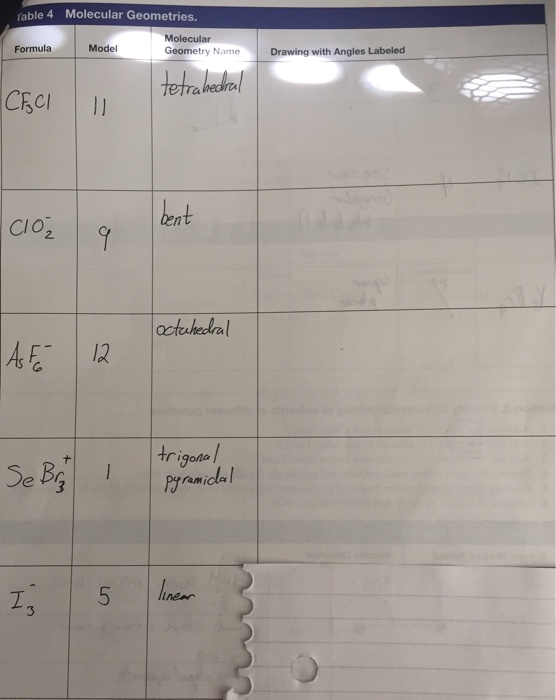 Table 4 Molecular Geometries.
Formula Model Molecular Geometry Name Drawing with Angles Labeled
CF₃Cl 11 tetrahedral
ClO₂⁻ 9 bent
AsF₆⁻ 12 octahedral
SeBr₃⁺ 1 trigonal
pyramidal
I₃⁻ 5 linear